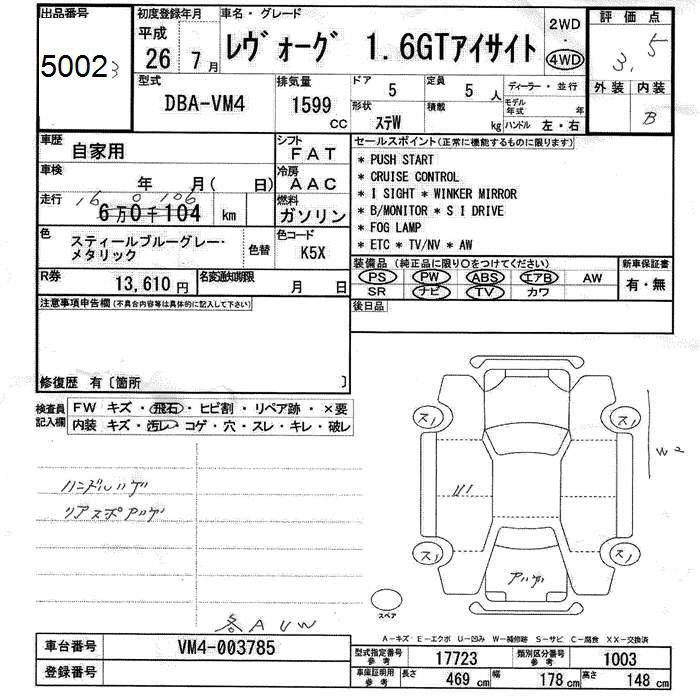 出品番号
5002
3
初度登録年月
平成
26 7月
車名・グレード
レヴォーグ 1.6GTアイサイト
2WD
・
4WD
評価点
3.5
外装 内装
B
型式
DBA-VM4
排気量
1599
CC
ドア
5
定員
5 人
形状
ステW
積載
kg
ディーラー・並行
モデル年式 年
ハンドル 左・右
車歴
自家用
シフト
FAT
車検
年 月( 日)
冷房
AAC
走行
16 0 106
6万0千104 km
燃料
ガソリン
色
スティールブルーグレー・
メタリック
色替
色コード
K5X
R券
13,610円
名変通知期限
月 日
セールスポイント(正常に機能するものに限ります)
* PUSH START
* CRUISE CONTROL
* I SIGHT * WINKER MIRROR
* B/MONITOR * S I DRIVE
* FOG LAMP
* ETC * TV/NV * AW
装備品 (純正品に限り○をつけてください)
PS PW ABS エアB AW
SR ナビ TV カワ
新車保証書
有・無
後日品
注意事項申告欄(不具合内容等は具体的に記入して下さい)
修復歴 有〔箇所 〕
検査員
記入欄
FW キズ・飛石・ヒビ割・リペア跡・×要
内装 キズ・汚レ・コゲ・穴・スレ・キレ・破レ
ハンドルハゲ
リアスポアハゲ
各AUW
ス1
ス1
ス1
ス1
W2
アハゲ
スペア
A-キズ E-エクボ U-凹み W-補修跡 S-サビ C-腐食 XX-交換済
車台番号
VM4-003785
登録番号
型式指定番号
参考
17723
類別区分番号
参考
1003
車庫証明用
参考
長さ 469 cm 幅 178 cm 高さ 148 cm